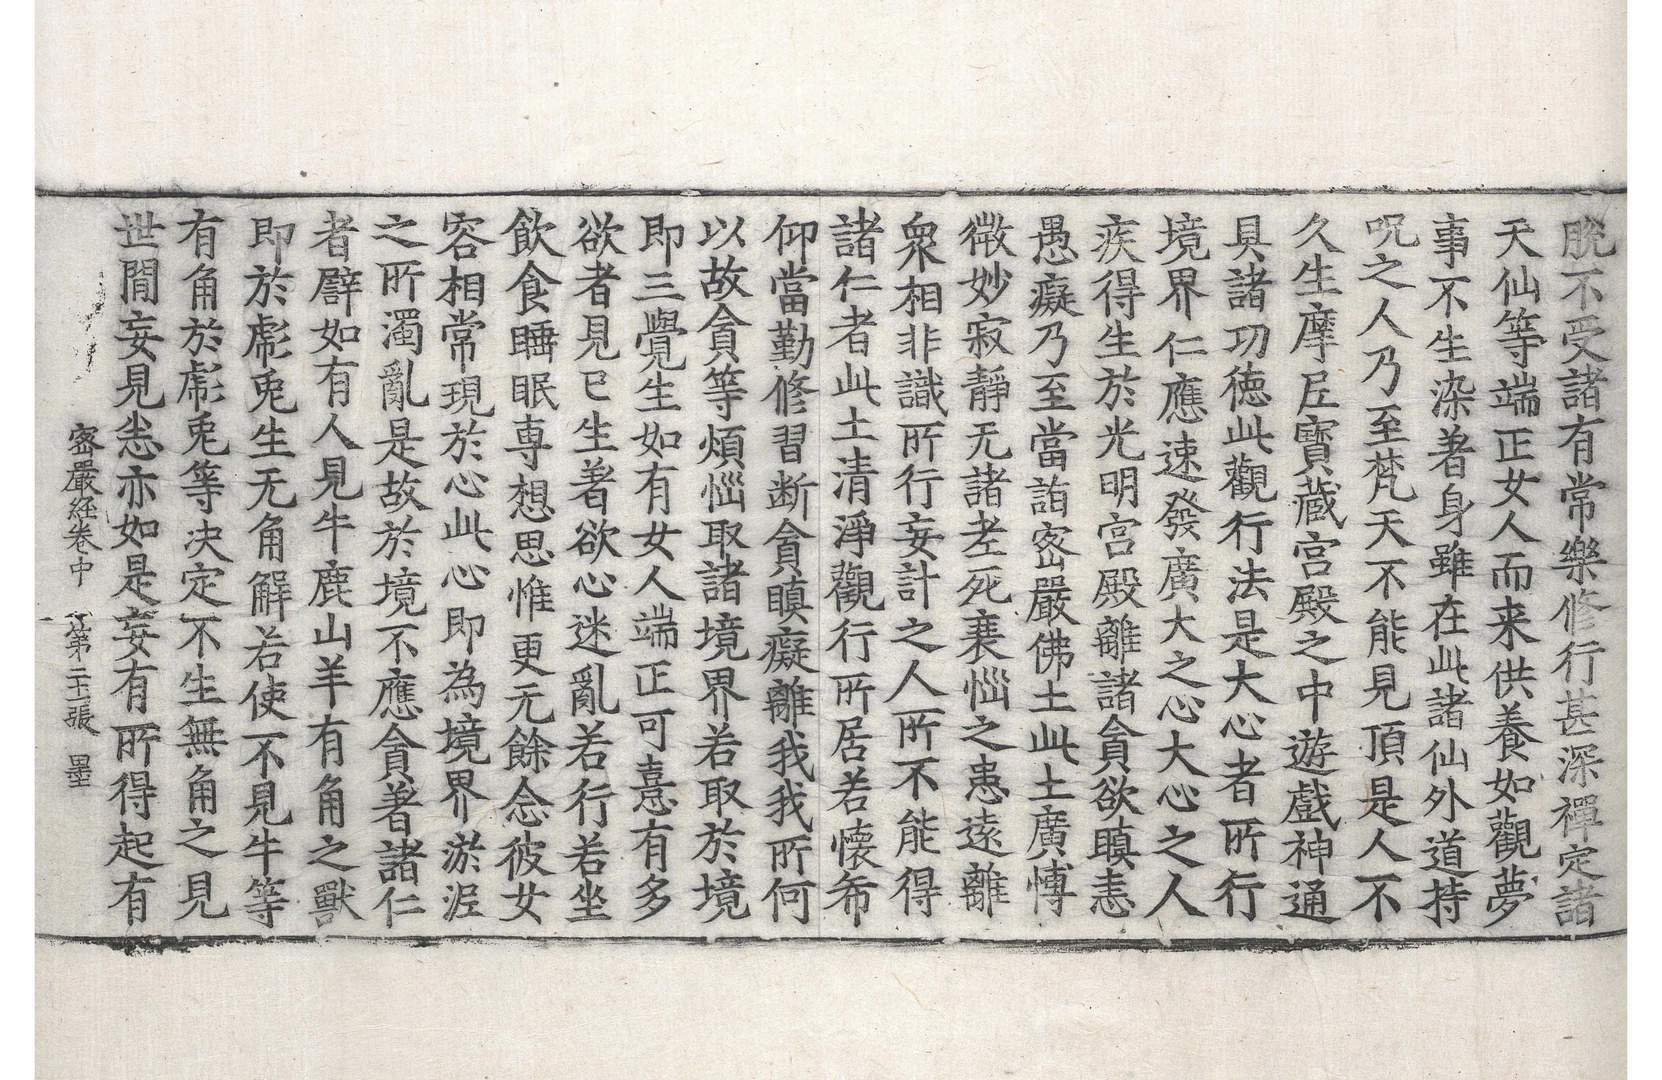 脫不受諸有常樂修行甚深禪定諸
天仙等端正女人而来供養如觀夢
事不生染著身雖在此諸仙外道持
呪之人乃至梵天不能見頂是人不
久生摩尼寶藏宫殿之中遊戲神通
具諸功徳此觀行法是大心者所行
境界仁應速發廣大之心大心之人
疾得生於光明宫殿離諸貪欲瞋恚
愚癡乃至當詣宻嚴佛土此土廣博
微妙寂靜无諸老死衰惱之患遠離
衆相非識所行妄計之人所不能得
諸仁者此土清淨觀行所居若懷希
仰當勤修習断貪瞋癡離我我所何
以故貪等煩惱取諸境界若取於境
即三覺生如有女人端正可憙有多
欲者見已生著欲心迷亂若行若坐
飲食睡眠専想思惟更无餘念彼女
容相常現於心此心即為境界淤泥
之所濁亂是故於境不應貪著諸仁
者譬如有人見牛鹿山羊有角之獸
即於彪兎生无角解若使不見牛等
有角於彪兎等决定不生無角之見
世間妄見恙亦如是妄有所得起有
宻嚴経卷中　第二十張　㽃